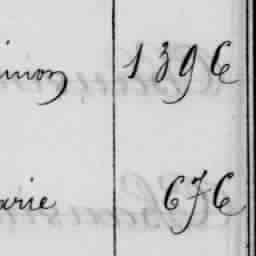 imon 1396
arie 676